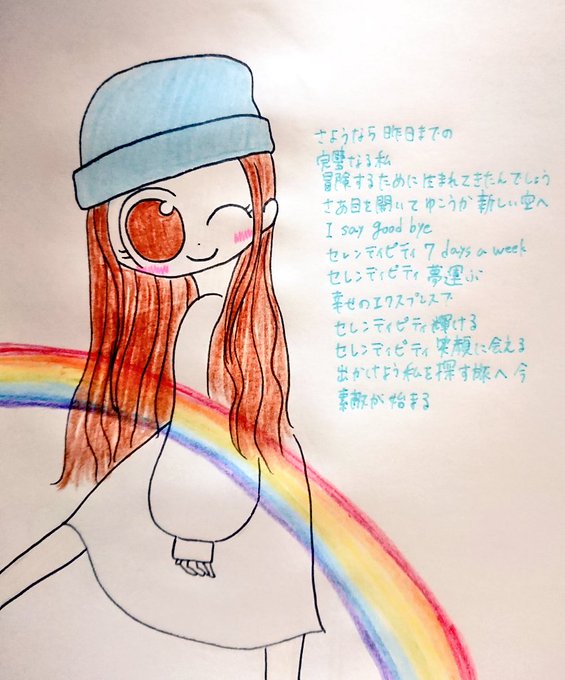 さようなら 昨日までの
完璧なる私
冒険するために生まれてきたんでしょう
さあ目を開いて ゆこうか 新しい空へ
I say good bye
セレンディピティ 7 days a week
セレンディピティ 夢運ぶ
幸せのエクスプレスで
セレンディピティ 輝ける
セレンディピティ 笑顔に会える
出かけよう 私を探す旅へ 今
素敵が始まる